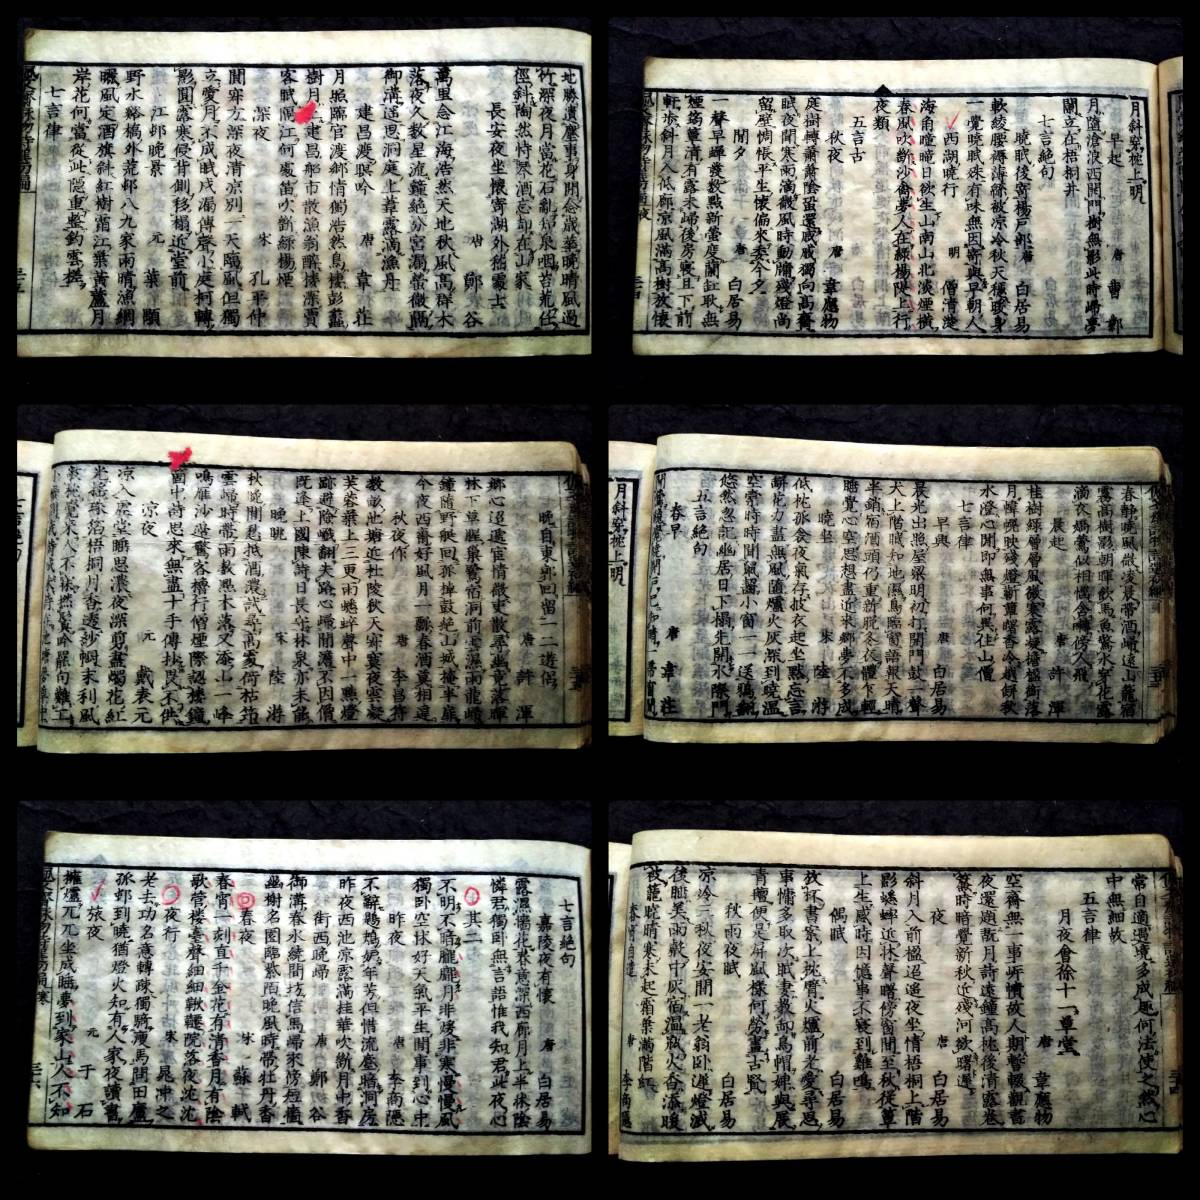 地勝遺塵事身閒念歲華晚晴風過
竹深夜月當花石亂泉咽苔荒任
徑斜陶然恃琴酒忘卻在山家
長安夜坐懷寄湖外嵇處士
唐 鄭谷
萬里念江海浩然天地秋風高群木
落夜久數星流鐘絕分宮漏螢微隔
御溝遙思洞庭上葦露滴漁舟
建昌渡暝吟
唐 韋莊
月照臨官渡鄉情獨浩然鳥棲彭蠡
樹月上建昌船市散漁翁醉樓深賈
客眠隔江何處笛吹斷綠楊煙
深夜
宋 孔平仲
閒穿方深夜清涼別一天臨風但獨
立愛月不成眠戍濁傳聲小庭柯轉
影圓露寒侵背劍移榻近堂前
江邨晚景
元 葉顒
野水谿橋外荒邨八九家雨晴漁網
曬風定酒旗斜紅樹霜江葉黃蘆月
岸花何當從此隱重整釣雲槎
七言律
早起
唐 曹鄴
月墮滄浪西開門樹無影此時歸夢
闌立在梧桐井
七言絕句
曉眠後寄楊戶部
唐 白居易
軟綾腰褥薄綿被涼冷秋天穩暖身
一覺曉眠殊有味無因寄與早朝人
西湖曉行
明 僧清濋
海角曈曈日欲生山南山北淡煙橫
春風吹斷沙禽夢人在綠楊堤上行
夜類
五言古
秋夜
唐 韋應物
庭樹轉蕭蕭陰蟲還戚戚獨向高齋
眠夜聞寒雨滴微風時動牖殘燈尚
留壁惆悵平生懷偏來委今夕
聞夕
唐 白居易
一聲早蟬發數點新螢度蘭釭耿無
煙筠簟清有露未歸後房寢且下前
軒步斜月入低廊涼風滿高樹放懷
晚自東郭回留一二遊侶
唐 許渾
鄉心迢遞宦情微吏散尋幽竟落暉
林下草腥巢鷺宿洞前雲濕雨龍歸
鐘隨野艇回孤棹鼓絕山城掩半扉
今夜西齋好風月一瓢春酒莫相違
秋夜作
唐 李昌符
數畝池塘近杜陵秋天寂寞夜雲凝
芙蓉葉上三更雨蟋蟀聲中一點燈
跡避險巇翻失路心歸閒澹不因僧
既逢上國陳詩日長守林泉亦未能
晚眺
宋 陸游
秋晚閒愁抵酒濃試尋高處倚枯筇
雲歸時帶雨數點木落又添山一峰
鳴雁沙邊驚客櫓行僧煙際認樓鐘
箇中詩思來無盡十手傳抄畏不供
涼夜
元 戴表元
春靜曉風微凌晨帶酒歸遠山籠宿
霧高樹影朝暉飲馬魚驚水穿花露
滴衣嬌鶯似相惱含囀傍人飛
晨起
唐 許渾
桂樹綠層層風微寒露凝檐楹銜落
月幃幌映殘燈新簟曙香冷越餅秋
水澄心閒即無事何異住山僧
七言律
早興
唐 白居易
晨光出照屋梁明初打開門鼓一聲
犬上階眠知地濕鳥臨窗語報天晴
半銷宿酒頭仍重新脫冬衣體乍輕
睡覺心空思想盡近來鄉夢不多成
曉坐
宋 陸游
低枕孤衾夜氣存披衣起坐默忘言
瓶花力盡無風墮爐火灰深到曉溫
空槽時時聞鼠齧小窗一一送鴉翻
悠然忽記幽居日下榻先開水際門
五言絕句
春早
唐 韋莊
七言絕句
嘉陵夜有懷
唐 白居易
露濕牆花春意深西廊月上半床陰
憐君獨臥無言語惟我知君此夜心
其二
不明不暗朧朧月非煖非寒慢慢風
獨臥空床好天氣平生閒事到心中
昨夜
唐 李商隱
不辭鶗鴂妒年芳但惜流塵暗洞房
昨夜西池涼露滿桂華吹斷月中香
街西晚歸
唐 鄭谷
御溝春水繞閒坊信馬歸來傍短牆
幽樹名園臨紫陌晚風時帶牡丹香
春夜
宋 蘇軾
春宵一刻直千金花有清香月有陰
歌管樓臺聲細細鞦韆院落夜沈沈
夜行
宋 晁冲之
老去功名意轉疎獨騎瘦馬問田廬
孤邨到曉猶燈火知有人家夜讀書
旅夜
元 于石
擁爐兀兀坐成睡夢到家山人不知
常自適遇境多成趣何法使之然心
中無細故
五言律
月夜會徐十一草堂
唐 韋應物
空齋無一事岸幘故人期暫輟觀書
夜還題翫月詩遠鐘高枕後清露卷
簾時暗覺新秋近殘河欲曙遲
夜
唐 白居易
斜月入前楹迢迢夜坐情梧桐上階
影蟋蟀近床聲曙傍窗間至秋從簟
上生感時因憶事不寢到雞鳴
偶眠
唐 白居易
放杯書案上枕臂火爐前老愛尋思
事慵多取次眠妻教卸烏帽婢與展
青氈便是屏風樣何勞畫古賢
秋雨夜眠
唐 白居易
涼冷三秋夜安閒一老翁臥遲燈滅
後睡美雨聲中灰宿溫瓶火香添暖
被籠曉晴寒未起霜葉滿階紅